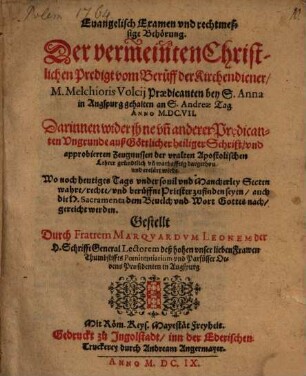 Polem 1764
Euangelisch Examen vnd rechtmes-
sige Behörung.
Der vermeinten Christ-
lichen Predigt vom Berüff der Kirchendiener/
M. Melchioris Volcij Prædicanten bey S. Anna
in Augspurg gehalten an S. Andreæ Tag
ANNO M.DC.VII.
Darinnen wider jhne vñ anderer Prædican-
ten Vngrunde auß Göttlicher heiliger Schrifft/ vnd
approbierten Zeugnussen der vralten Apostolischen
Lehrer gründtlich vñ warhafftig dargethan
vnd erklärt würdt.
Wo noch heutiges Tags vnder souil vnd Mancherley Secten
wahre/ rechte/ vnd berüffne Priester zufinden seyen/ auch
die H. Sacramenta dem Beuelch vnd Wort Gottes nach/
gereicht werden.
Gestellt
Durch Fratrem MARQVARDVM LEONEM der
H. Schrifft General Lectorem deß hohen vnser lieben Frawen
Thumbstiffts Pœnitentiarium vnd Parfüsser Or-
dens Præsidenten in Augspurg
Mit Röm. Keys. Mayestät Freyheit.
Gedruckt zu Ingolstadt/ inn der Ederischen
Truckerey durch Andream Angermayer.
ANNO M. DC. IX.